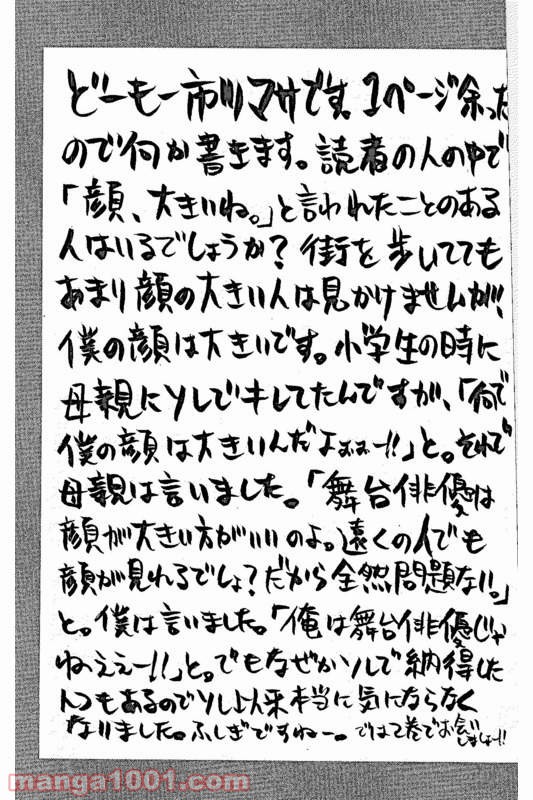 どーもー市川マサです。1ページ余った
ので何か書きます。読者の人の中で
「顔、大きいね。」と言われたことのある
人はいるでしょうか？街を歩いてても
あまり顔の大きい人は見かけませんが、
僕の顔は大きいです。小学生の時に
母親にソレでキレてたんですが、「何で
僕の顔は大きいんだよぉぉー!!」と。それで
母親は言いました。「舞台俳優は
顔が大きい方がいいのよ。遠くの人でも
顔が見れるでしょ？だから全然問題ない。」
と。僕は言いました。「俺は舞台俳優じゃ
ねぇえー!!」と。でもなぜかソレで納得した
トコもあるのでソレ以来本当に気にならなく
なりました。ふしぎですねー。では2巻でお会い
しましょー!!
manga1001.com